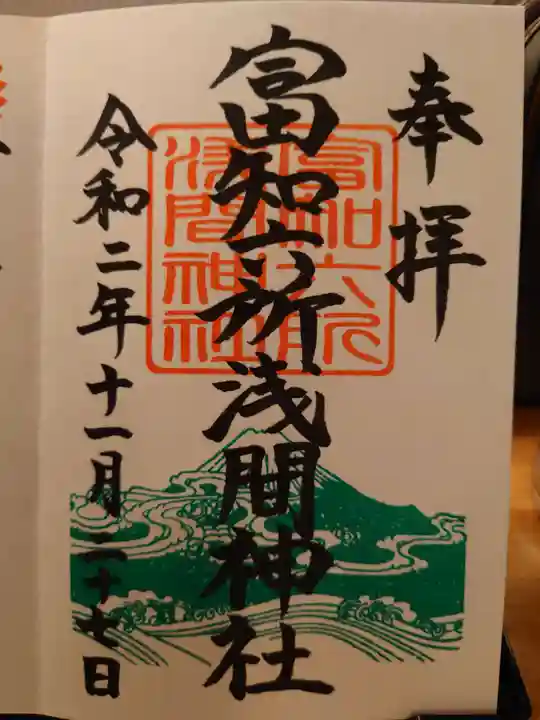 奉拝
富知六所浅間神社
富知六所
浅間神社
令和二年十一月二十七日